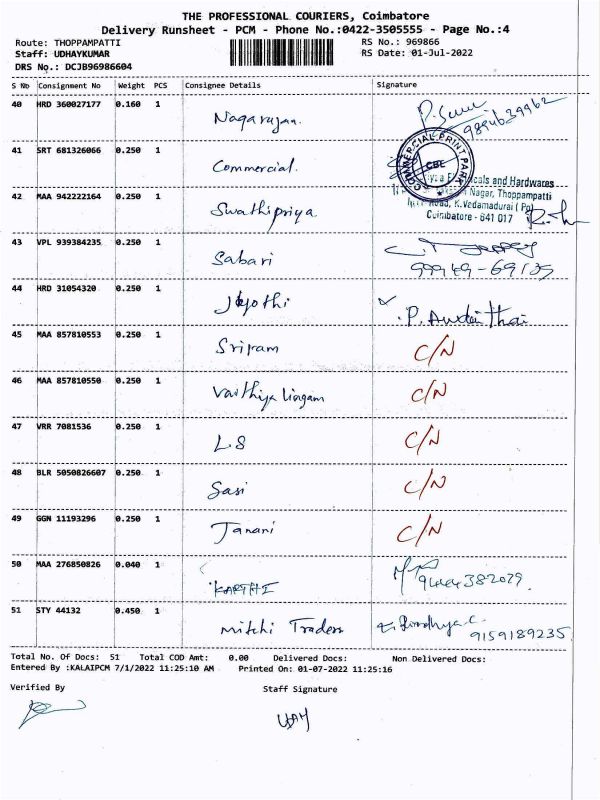 THE PROFESSIONAL COURIERS, Coimbatore
Delivery Runsheet - PCM - Phone No.:0422-3505555 - Page No.:4
Route: THOPPAMPATTI RS No.: 969866
Staff: UDHAYKUMAR RS Date: 01-Jul-2022
DRS No.: DCJB96986604
S No Consignment No Weight PCS Consignee Details Signature
40 HRD 360027177 0.160 1 Nagarajan.
41 SRT 681326066 0.250 1 Commercial.
COMMERCIAL PRINT PARK
CBE
cals and Hardwares
42 MAA 942222164 0.250 1 Swathipriya
Nagar, Thoppampatti
Road, K.Vedamadurai (Po)
Coimbatore - 641 017
43 VPL 939384235 0.250 1 Sabari
44 HRD 31054320 0.250 1 Jyothi
45 MAA 857810553 0.250 1 Sriram C/N
46 MAA 857810550 0.250 1 Vaithiya lingam C/N
47 VRR 7081536 0.250 1 L.S C/N
48 BLR 5050826607 0.250 1 Sasi C/N
49 GGN 11193296 0.250 1 Janani C/N
50 MAA 276850826 0.040 1 KARTHI
51 STY 44132 0.450 1 Mitchi Traders 9159189235
Total No. Of Docs: 51 Total COD Amt: 0.00 Delivered Docs: Non Delivered Docs:
Entered By :KALAIPCM 7/1/2022 11:25:10 AM Printed On: 01-07-2022 11:25:16
Verified By Staff Signature